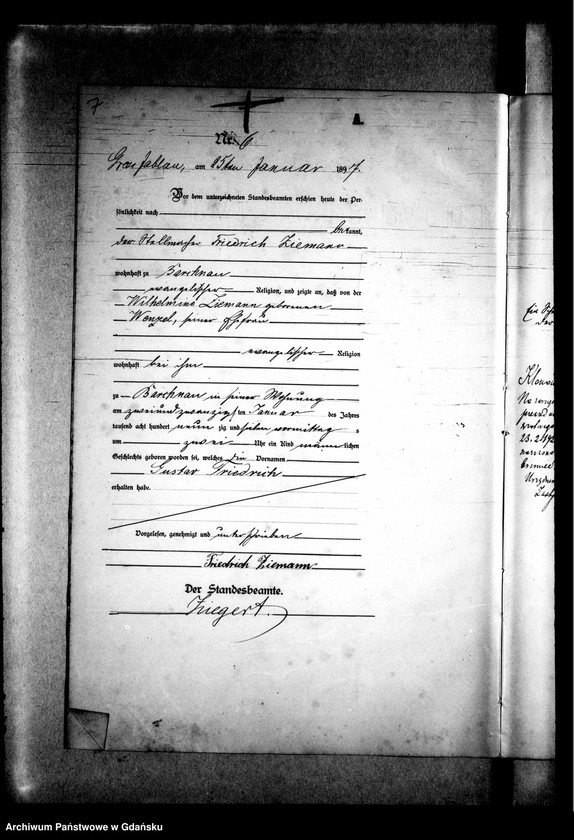 7
A.
Nr. 6
Gross Jablau, am 25ten Januar 1897.
Vor dem unterzeichneten Standesbeamten erschien heute der Per-
sönlichkeit nach
bekannt,
der Stellmacher Friedrich Ziemann
wohnhaft zu Barchnau
evangelischer Religion, und zeigte an, daß von der
Wilhelmine Ziemann geborenen
Wenzel, seiner Ehefrau
evangelischer Religion
wohnhaft bei ihm
zu Barchnau in seiner Wohnung
am zweiundzwanzigsten Januar des Jahres
tausend acht hundert neunzig und sieben vormittag s
um zwei Uhr ein Kind männlichen
Geschlechts geboren worden sei, welches die Vornamen
Gustav Friedrich
erhalten habe.
Vorgelesen, genehmigt und unterschrieben
Friedrich Ziemann
Der Standesbeamte.
Ein
der
23.2.192
Archiwum Państwowe w Gdańsku